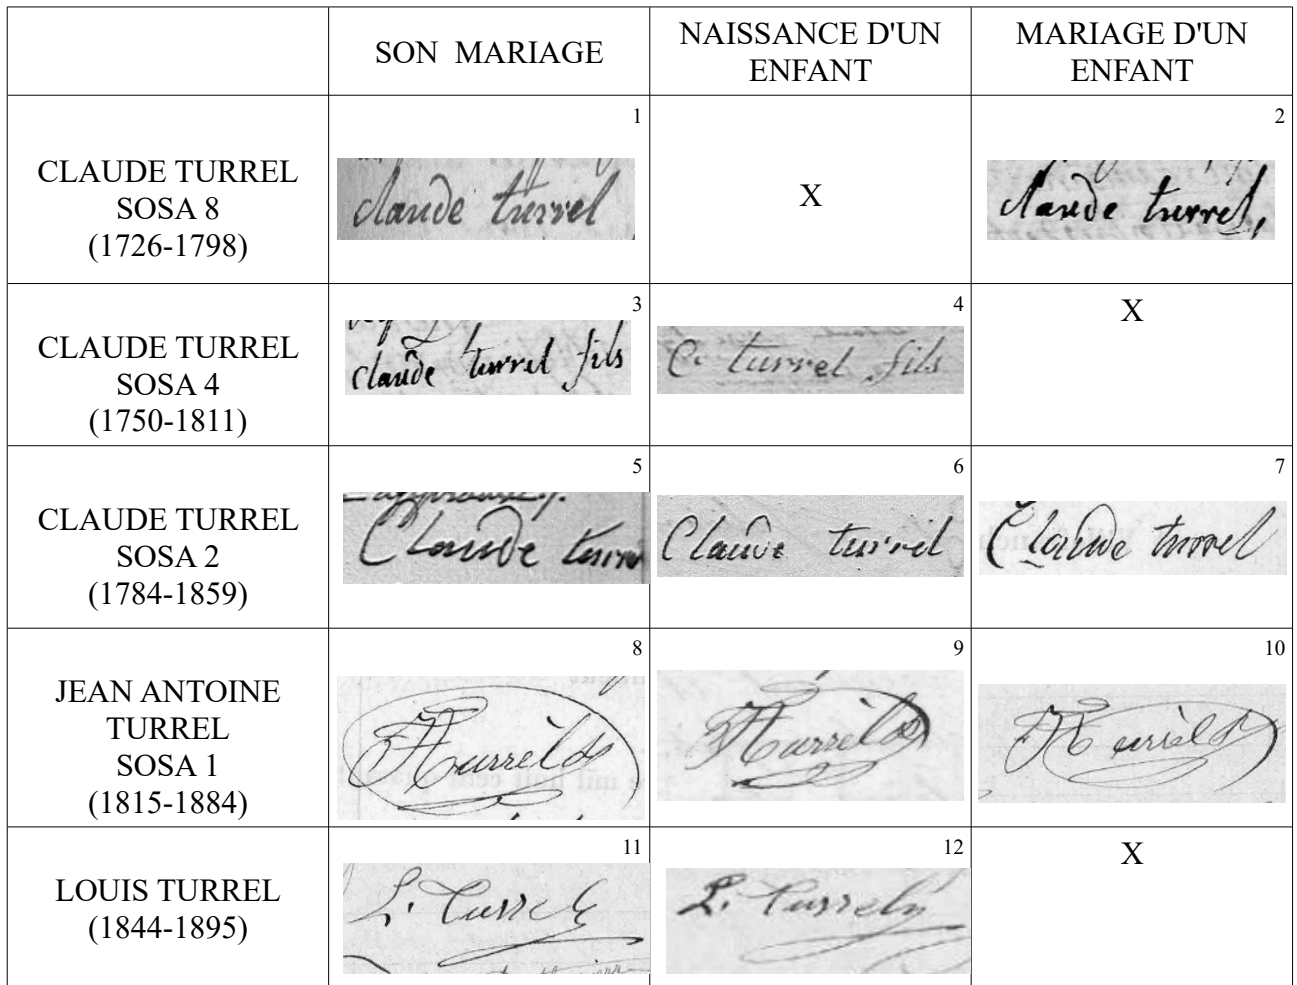 SON MARIAGE
NAISSANCE D'UN
ENFANT
MARIAGE D'UN
ENFANT
CLAUDE TURREL
SOSA 8
(1726-1798)
1
claude turrel
X
2
claude turrel,
CLAUDE TURREL
SOSA 4
(1750-1811)
3
claude turrel fils
4
Ce turrel fils
X
CLAUDE TURREL
SOSA 2
(1784-1859)
5
Claude turrel
6
Claude turrel
7
Claude turrel
JEAN ANTOINE
TURREL
SOSA 1
(1815-1884)
8
Turrel
9
Turrel
10
Turrel
LOUIS TURREL
(1844-1895)
11
L. Turrel
12
L. Turrel
X